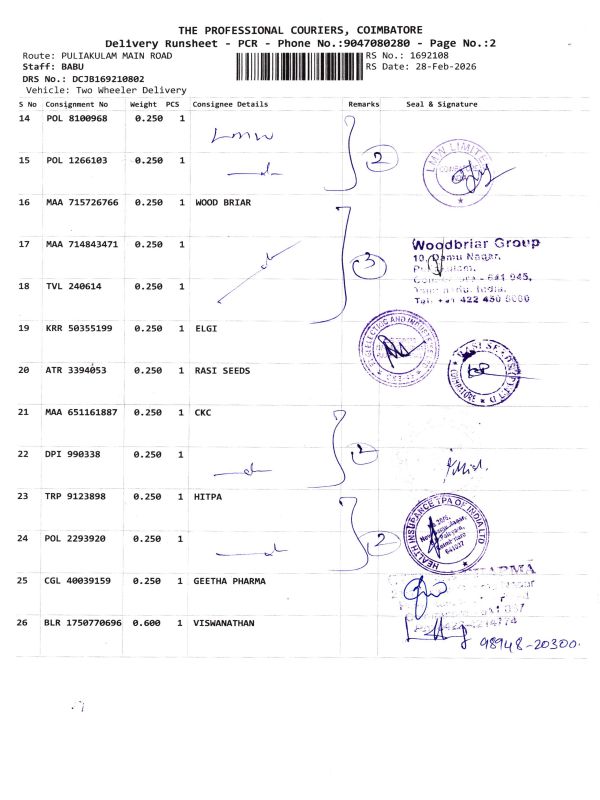 THE PROFESSIONAL COURIERS, COIMBATORE
Delivery Runsheet - PCR - Phone No.:9047080280 - Page No.:2
Route: PULIAKULAM MAIN ROAD RS No.: 1692108
Staff: BABU RS Date: 28-Feb-2026
DRS No.: DCJB169210802
Vehicle: Two Wheeler Delivery
S No Consignment No Weight PCS Consignee Details Remarks Seal & Signature
14 POL 8100968 0.250 1 LMW
15 POL 1266103 0.250 1 2 LMW LIMITED
16 MAA 715726766 0.250 1 WOOD BRIAR
17 MAA 714843471 0.250 1 3 Woodbriar Group
18 TVL 240614 0.250 1
19 KRR 50355199 0.250 1 ELGI
20 ATR 3394053 0.250 1 RASI SEEDS
21 MAA 651161887 0.250 1 CKC
22 DPI 990338 0.250 1 2
23 TRP 9123898 0.250 1 HITPA
24 POL 2293920 0.250 1 2 HEALTH INSURANCE TPA OF INDIA LTD
25 CGL 40039159 0.250 1 GEETHA PHARMA
26 BLR 1750770696 0.600 1 VISWANATHAN
98948-20300